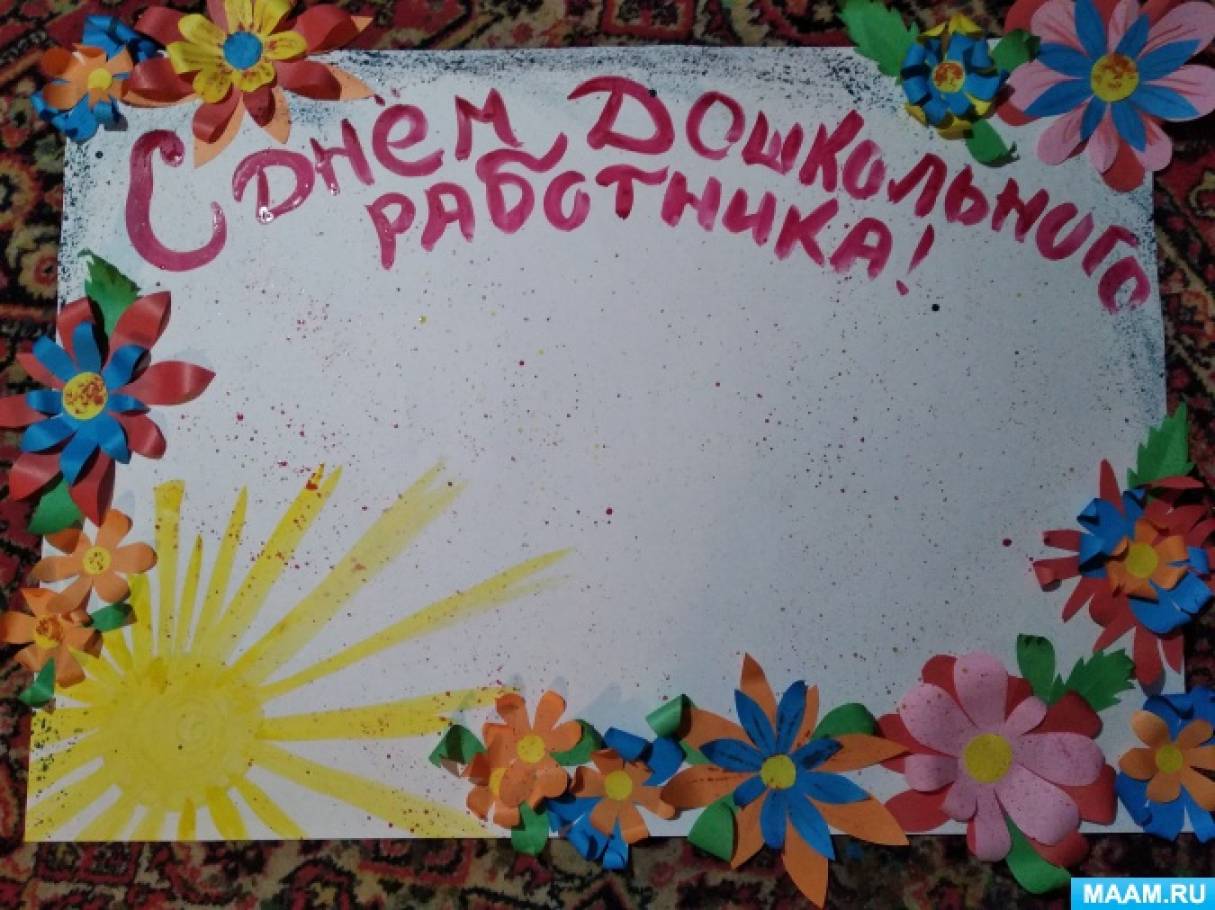 С Днём Дошкольного
работника!
MAAM.RU